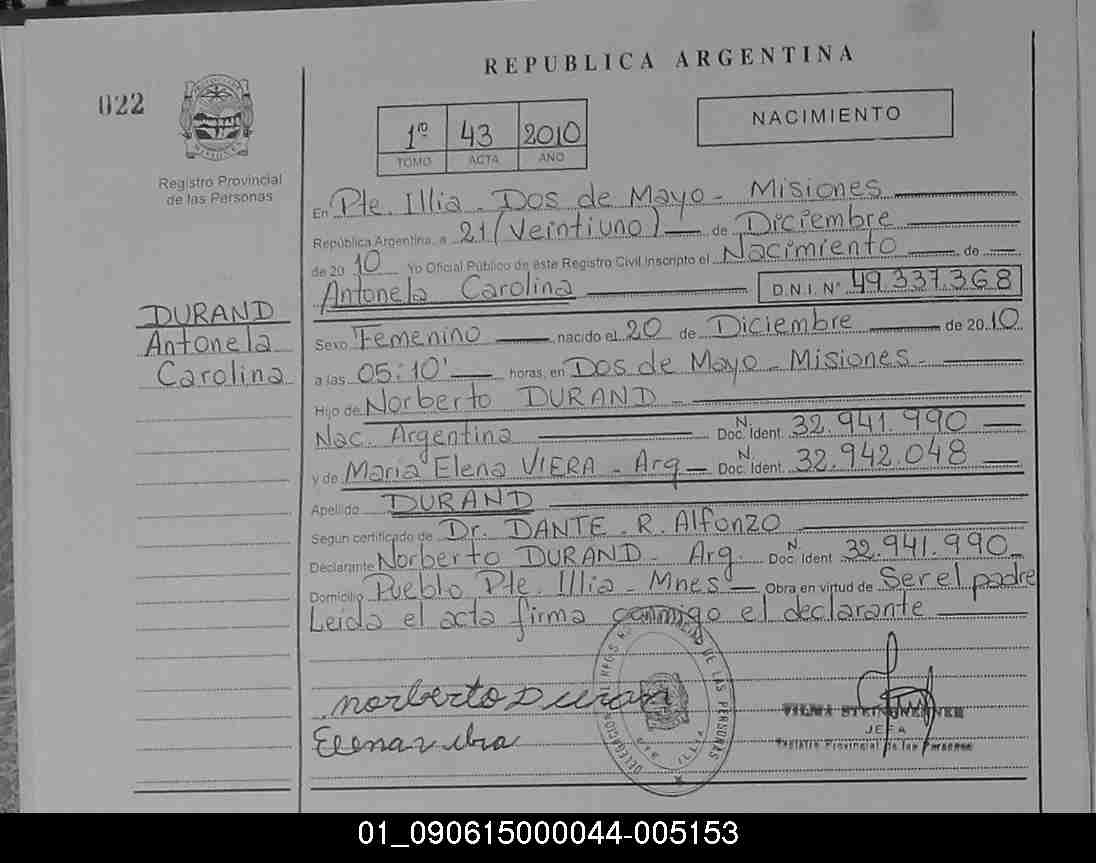 REPUBLICA ARGENTINA
022
1ro 43 2010
TOMO ACTA AÑO
NACIMIENTO
Registro Provincial
de las Personas
En Pte. Illia - Dos de Mayo - Misiones
República Argentina, a 21 (Veintiuno) de Diciembre
de 20 10 Yo Oficial Público de este Registro Civil Inscripto el Nacimiento de
Antonela Carolina D.N.I. Nº 49.337.368
DURAND
Antonela
Carolina
Sexo Femenino nacido el 20 de Diciembre de 20 10
a las 05:10' horas, en Dos de Mayo - Misiones -
Hijo de Norberto DURAND -
Nac. Argentina Doc. N. Ident. 32.941.990
y de Maria Elena VIERA - Arg Doc. N. Ident. 32.942.048
Apellido DURAND
Segun certificado de Dr. DANTE . R. Alfonzo
Declarante Norberto DURAND - Arg. Doc. N. Ident 32.941.990
Domicilio Pueblo Pte. Illia - Mnes Obra en virtud de Ser el padre
Leida el acta firma conmigo el declarante
norberto Duran
Elena
DE LAS PERSONAS
JEFA
Registro Provincial de las Personas
01_090615000044-005153